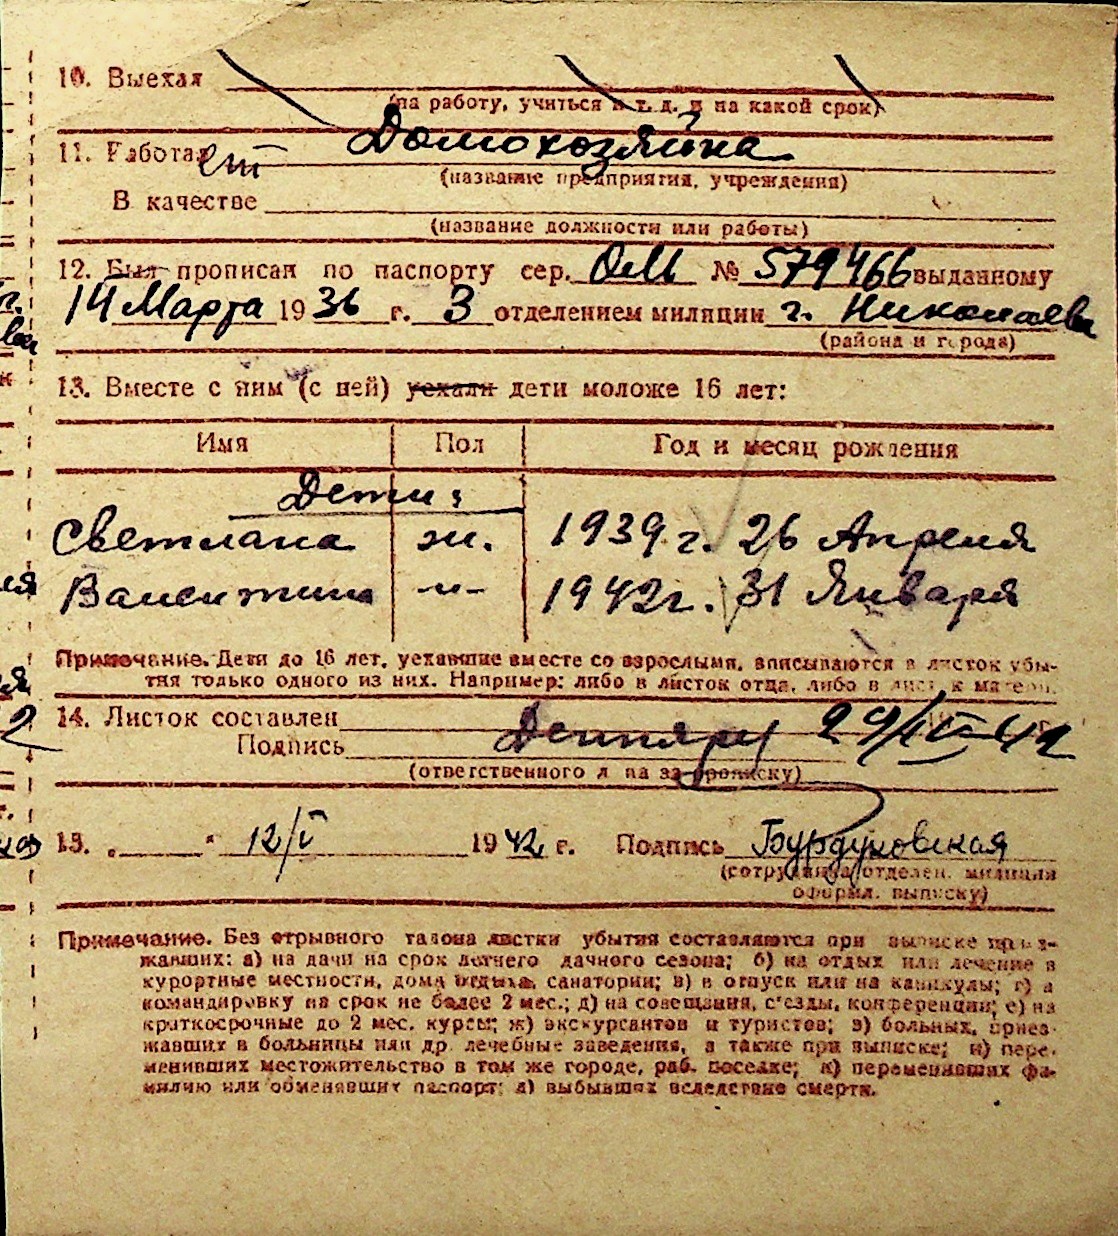 10. Выехал
(на работу, учиться и т. д. и на какой срок)
Домохозяйка
11. Работает
(название предприятия, учреждения)
В качестве
(название должности или работы)
12. Был прописан по паспорту сер. ОМ № 579466 выданному
14 Марта 1936 г. 3 отделением милиции г. Николаева
(района и города)
13. Вместе с ним (с ней) уехали дети моложе 16 лет:
Имя Пол Год и месяц рождения
Дети:
Светлана ж. 1939 г. 26 Апреля
Валентина -"- 1942 г. 31 Января
Примечание. Дети до 16 лет, уехавшие вместе со взрослыми, вписываются в листок убы-
тия только одного из них. Например: либо в листок отца, либо в листок матери.
14. Листок составлен 29/IV-42
Подпись
(ответственного лица за прописку)
15. „ “ 12/V 1942 г. Подпись Бурдуковская
(сотрудника отделен. милиции
оформл. выписку)
Примечание. Без отрывного талона листки убытия составляются при выписке приез-
жавших: а) на дачи на срок летнего дачного сезона; б) на отдых или лечение в
курортные местности, дома отдыха, санатории; в) в отпуск или на каникулы; г) в
командировку на срок не более 2 мес.; д) на совещания, с'езды, конференции; е) на
краткосрочные до 2 мес. курсы; ж) экскурсантов и туристов; з) больных, приез-
жавших в больницы или др. лечебные заведения, а также при выписке; и) пере-
менивших местожительство в том же городе, раб. поселке; к) переменивших фа-
милию или обменявших паспорт; л) выбывших вследствие смерти.